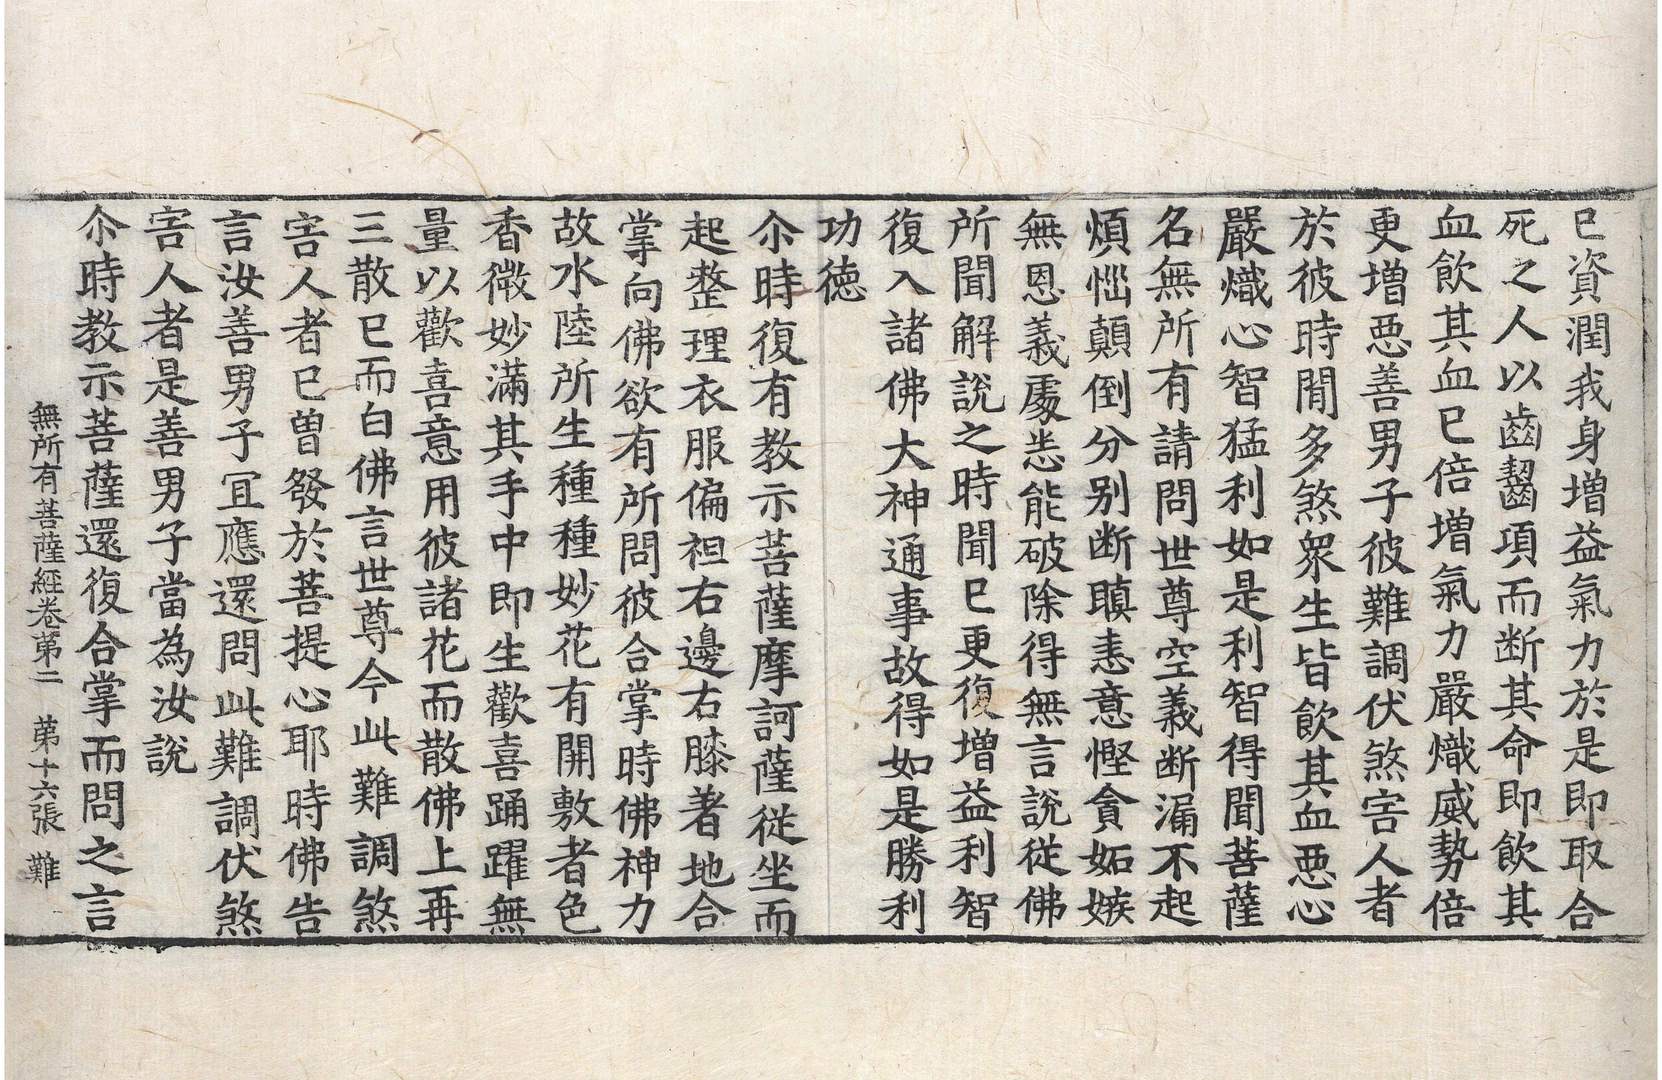 已資潤我身增益氣力於是即取合
死之人以齒齧項而断其命即飲其
血飲其血已倍增氣力嚴熾威勢倍
更增惡善男子彼難調伏煞害人者
於彼時閒多煞衆生皆飲其血惡心
嚴熾心智猛利如是利智得聞菩薩
名無所有請問世尊空義断漏不起
煩惱顛倒分别断瞋恚意慳貪妬嫉
無恩義處恙能破除得無言說從佛
所聞解說之時聞已更復增益利智
復入諸佛大神通事故得如是勝利
功徳
尒時復有教示菩薩摩訶薩從坐而
起整理衣服偏袒右邊右膝著地合
掌向佛欲有所問彼合掌時佛神力
故水陸所生種種妙花有開敷者色
香微妙滿其手中即生歡喜踊躍無
量以歡喜意用彼諸花而散佛上再
三散已而白佛言世尊今此難調煞
害人者已曽發於菩提心耶時佛告
言汝善男子冝應還問此難調伏煞
害人者是善男子當為汝說
尒時教示菩薩還復合掌而問之言
無所有菩薩經卷第二 第十六張 難